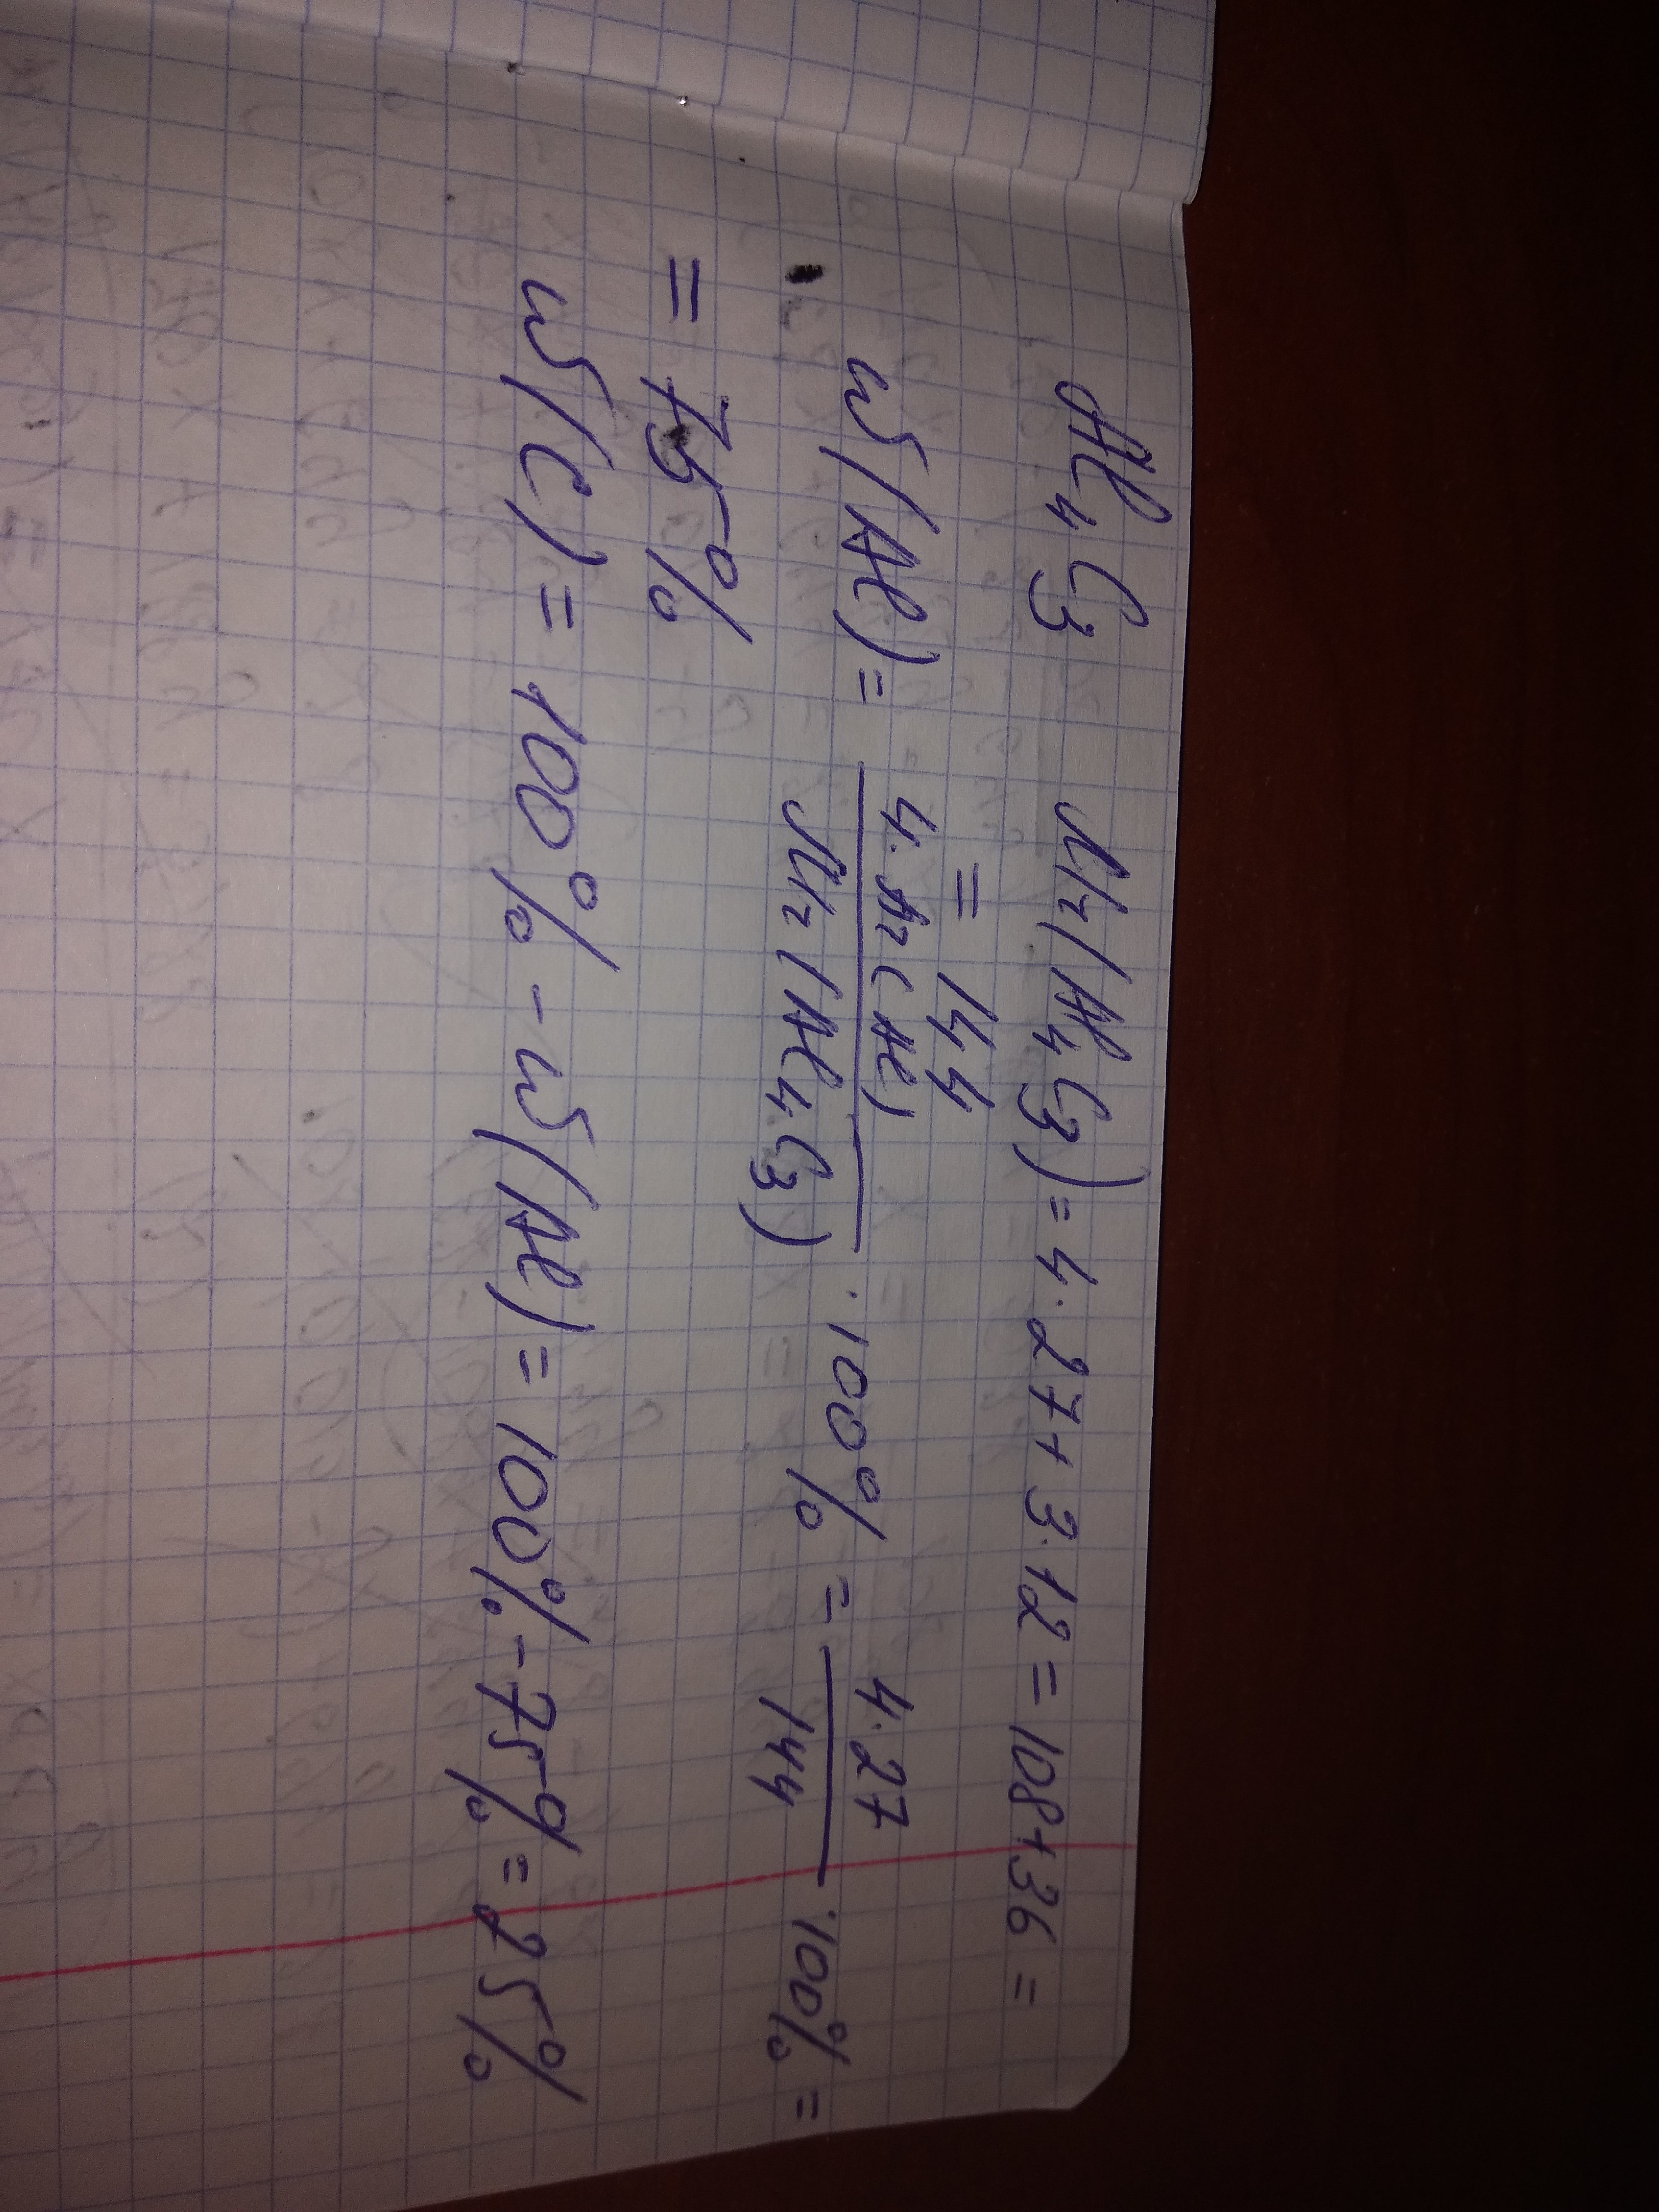 Al₄C₃ Mr(Al₄C₃) = 4·27 + 3·12 = 108 + 36 =
= 144
w(Al) = 4·Ar(Al) / Mr(Al₄C₃) · 100% = 4·27 / 144 · 100% =
= 75%
w(C) = 100% - w(Al) = 100% - 75% = 25%